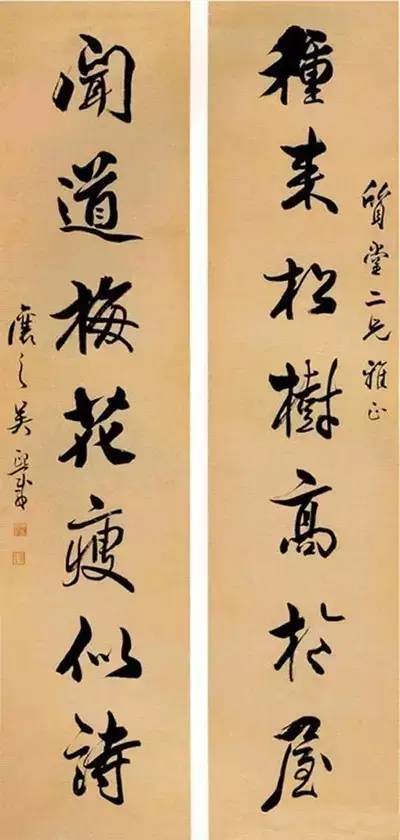 質堂二兄雅正
種来松樹高於屋
聞道梅花瘦似詩
讓之吴熙載